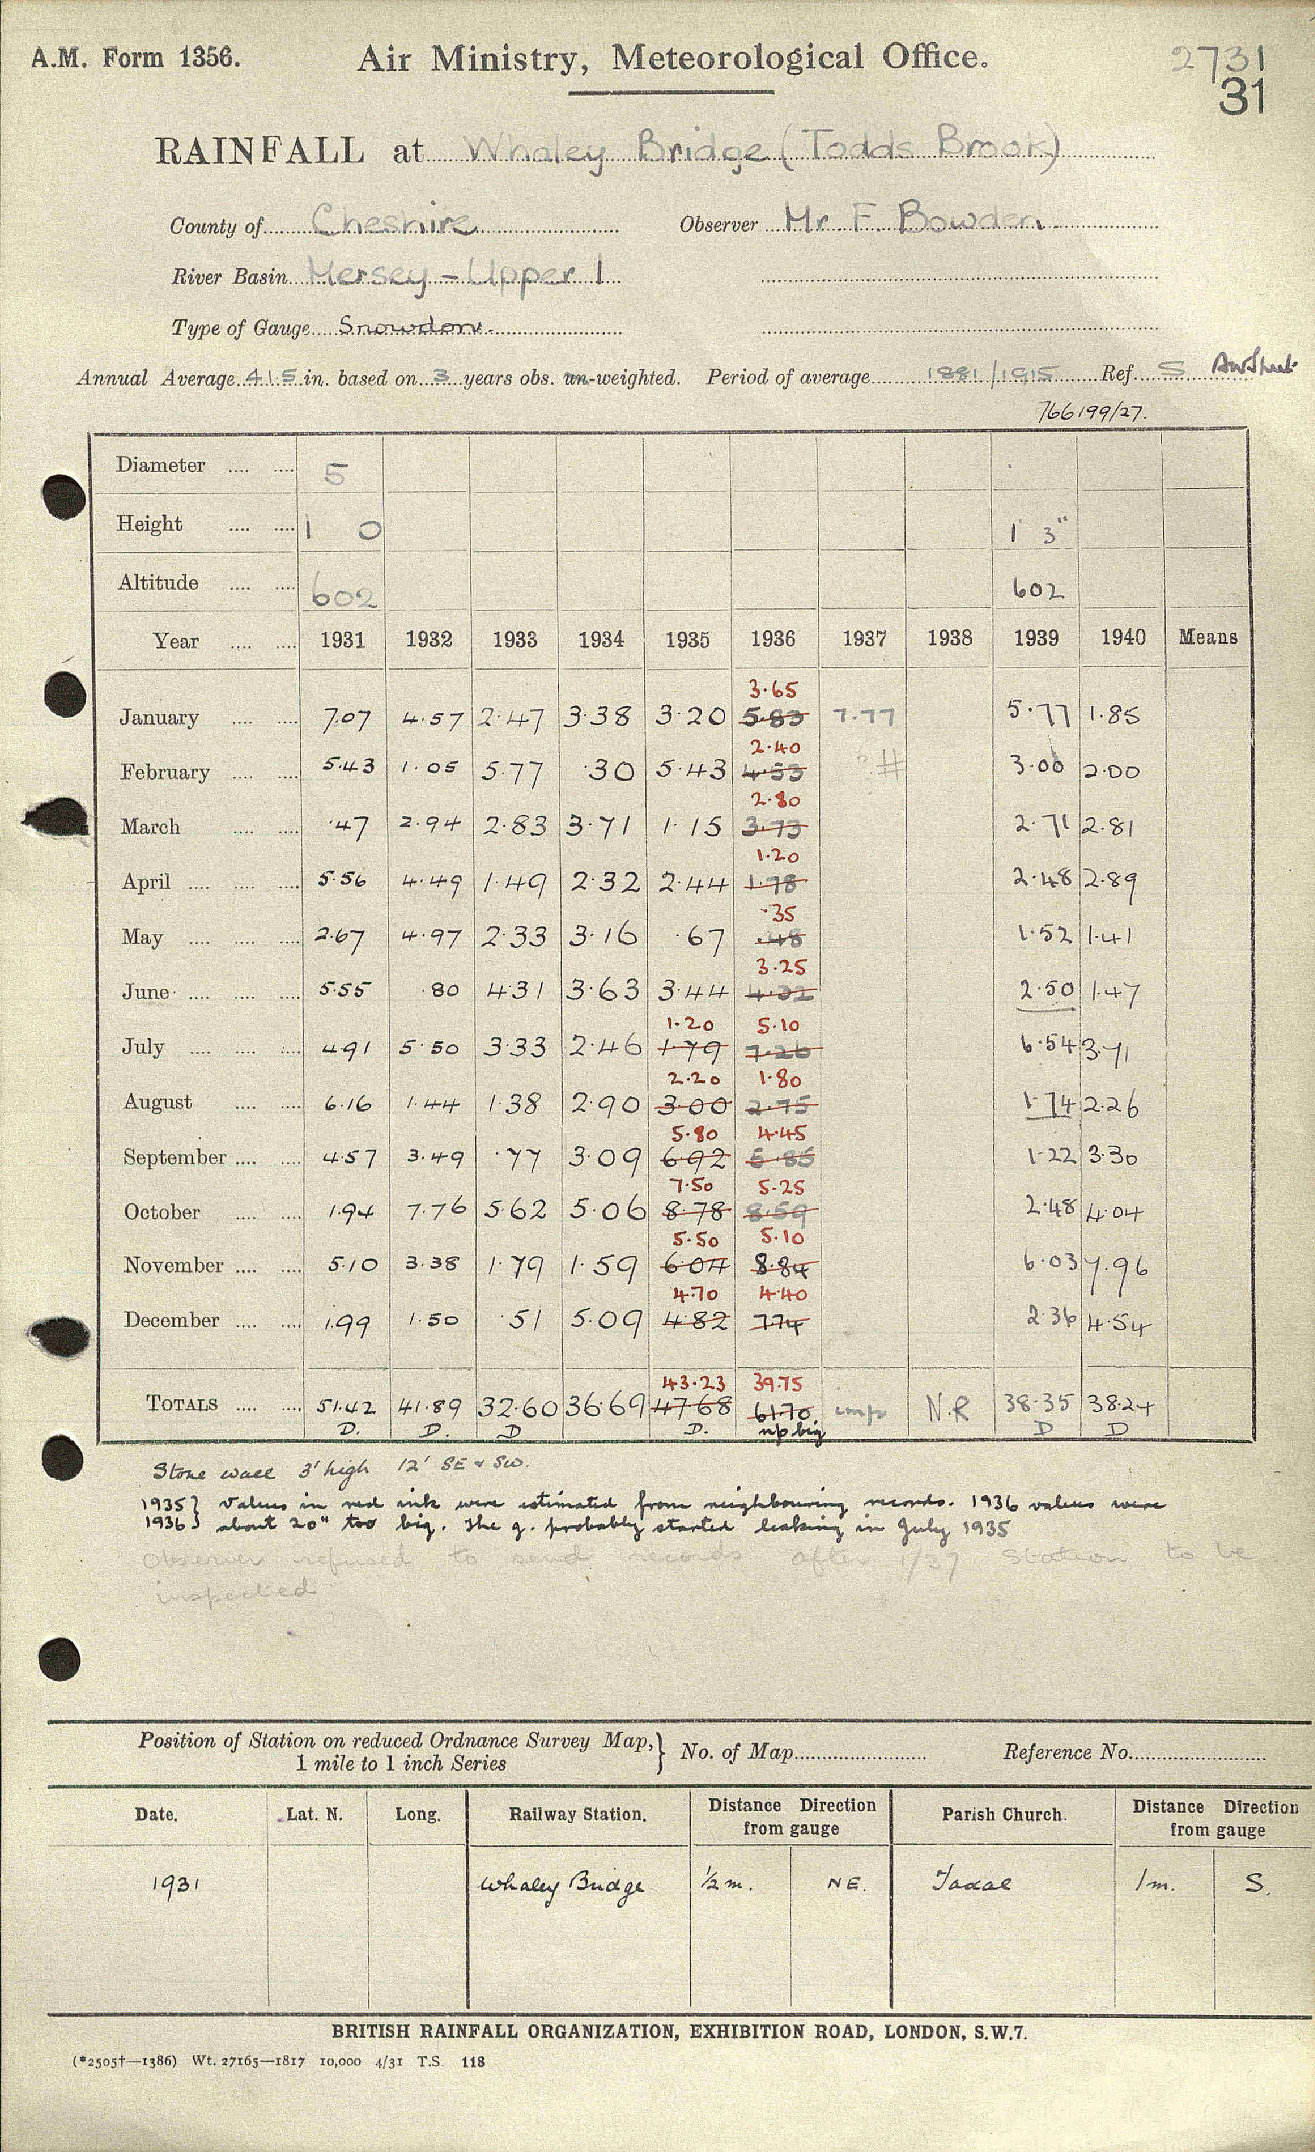 A.M. Form 1356.
Air Ministry, Meteorological Office.
2731
31
RAINFALL at Whaley Bridge (Todds Brook)
County of Cheshire Observer Mr F. Bowden
River Basin Mersey - Upper 1
Type of Gauge Snowdon
Annual Average 41.5 in. based on 3 years obs. un-weighted. Period of average 1881/1915 Ref. S
766199/27.
Diameter .... .... 5
Height .... .... 1 0 1 3"
Altitude .... .... 602 602
Year .... .... 1931 1932 1933 1934 1935 1936 1937 1938 1939 1940 Means
3.65
January .... .... 7.07 4.57 2.47 3.38 3.20 5.83 7.77 5.77 1.85
2.40
February .... .... 5.43 1.05 5.77 .30 5.43 4.53 # 3.00 2.00
2.80
March .... .... .47 2.94 2.83 3.71 1.15 3.73 2.71 2.81
1.20
April .... .... .... 5.56 4.49 1.49 2.32 2.44 1.78 2.48 2.89
.35
May .... .... .... 2.67 4.97 2.33 3.16 .67 .48 1.52 1.41
3.25
June .... .... .... 5.55 .80 4.31 3.63 3.44 4.32 2.50 1.47
1.20 5.10
July .... .... .... 4.91 5.50 3.33 2.46 1.79 7.26 6.54 3.71
2.20 1.80
August .... .... 6.16 1.44 1.38 2.90 3.00 2.75 1.74 2.26
5.80 4.45
September .... .... 4.57 3.49 .77 3.09 6.92 5.85 1.22 3.30
7.50 5.25
October .... .... 1.94 7.76 5.62 5.06 8.78 8.59 2.48 4.04
5.50 5.10
November .... .... 5.10 3.38 1.79 1.59 6.04 8.84 6.03 7.96
4.70 4.40
December .... .... 1.99 1.50 .51 5.09 4.82 7.74 2.36 4.54
43.23 39.75
TOTALS .... .... 51.42 41.89 32.60 36.69 47.68 61.70 imp N.R 38.35 38.24
D. D. D D. up big D D
Stone wall 3' high 12' SE & SW.
1935} Values in red ink were estimated from neighbouring records. 1936 values were
1936} about 20" too big. The g. probably started leaking in July 1935
Observer refused to send records after 1/37 Station to be
inspected
Position of Station on reduced Ordnance Survey Map,} No. of Map Reference No.
1 mile to 1 inch Series
Date. Lat. N. Long. Railway Station. Distance Direction from gauge Parish Church. Distance Direction from gauge
1931 Whaley Bridge ½ m. NE. Taxal 1 m. S.
BRITISH RAINFALL ORGANIZATION, EXHIBITION ROAD, LONDON, S.W.7.
(*2505†—1386) Wt. 27165—1817 10,000 4/31 T.S. 118